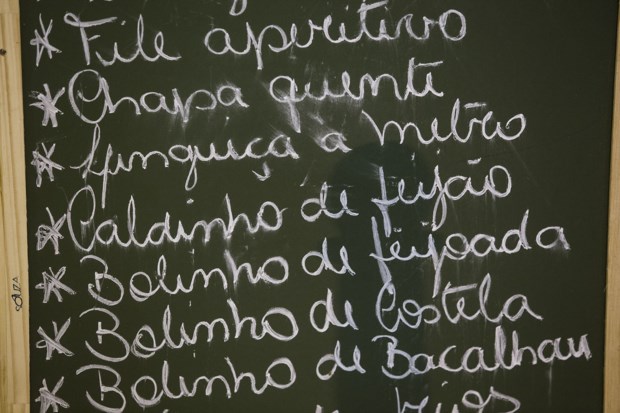 * File aperitivo
* Chapa quenti
* Linguiça a mitro
* Caldinho de feijão
* Bolinho de feijoada
* Bolinho de Costela
* Bolinho de Bacalhau